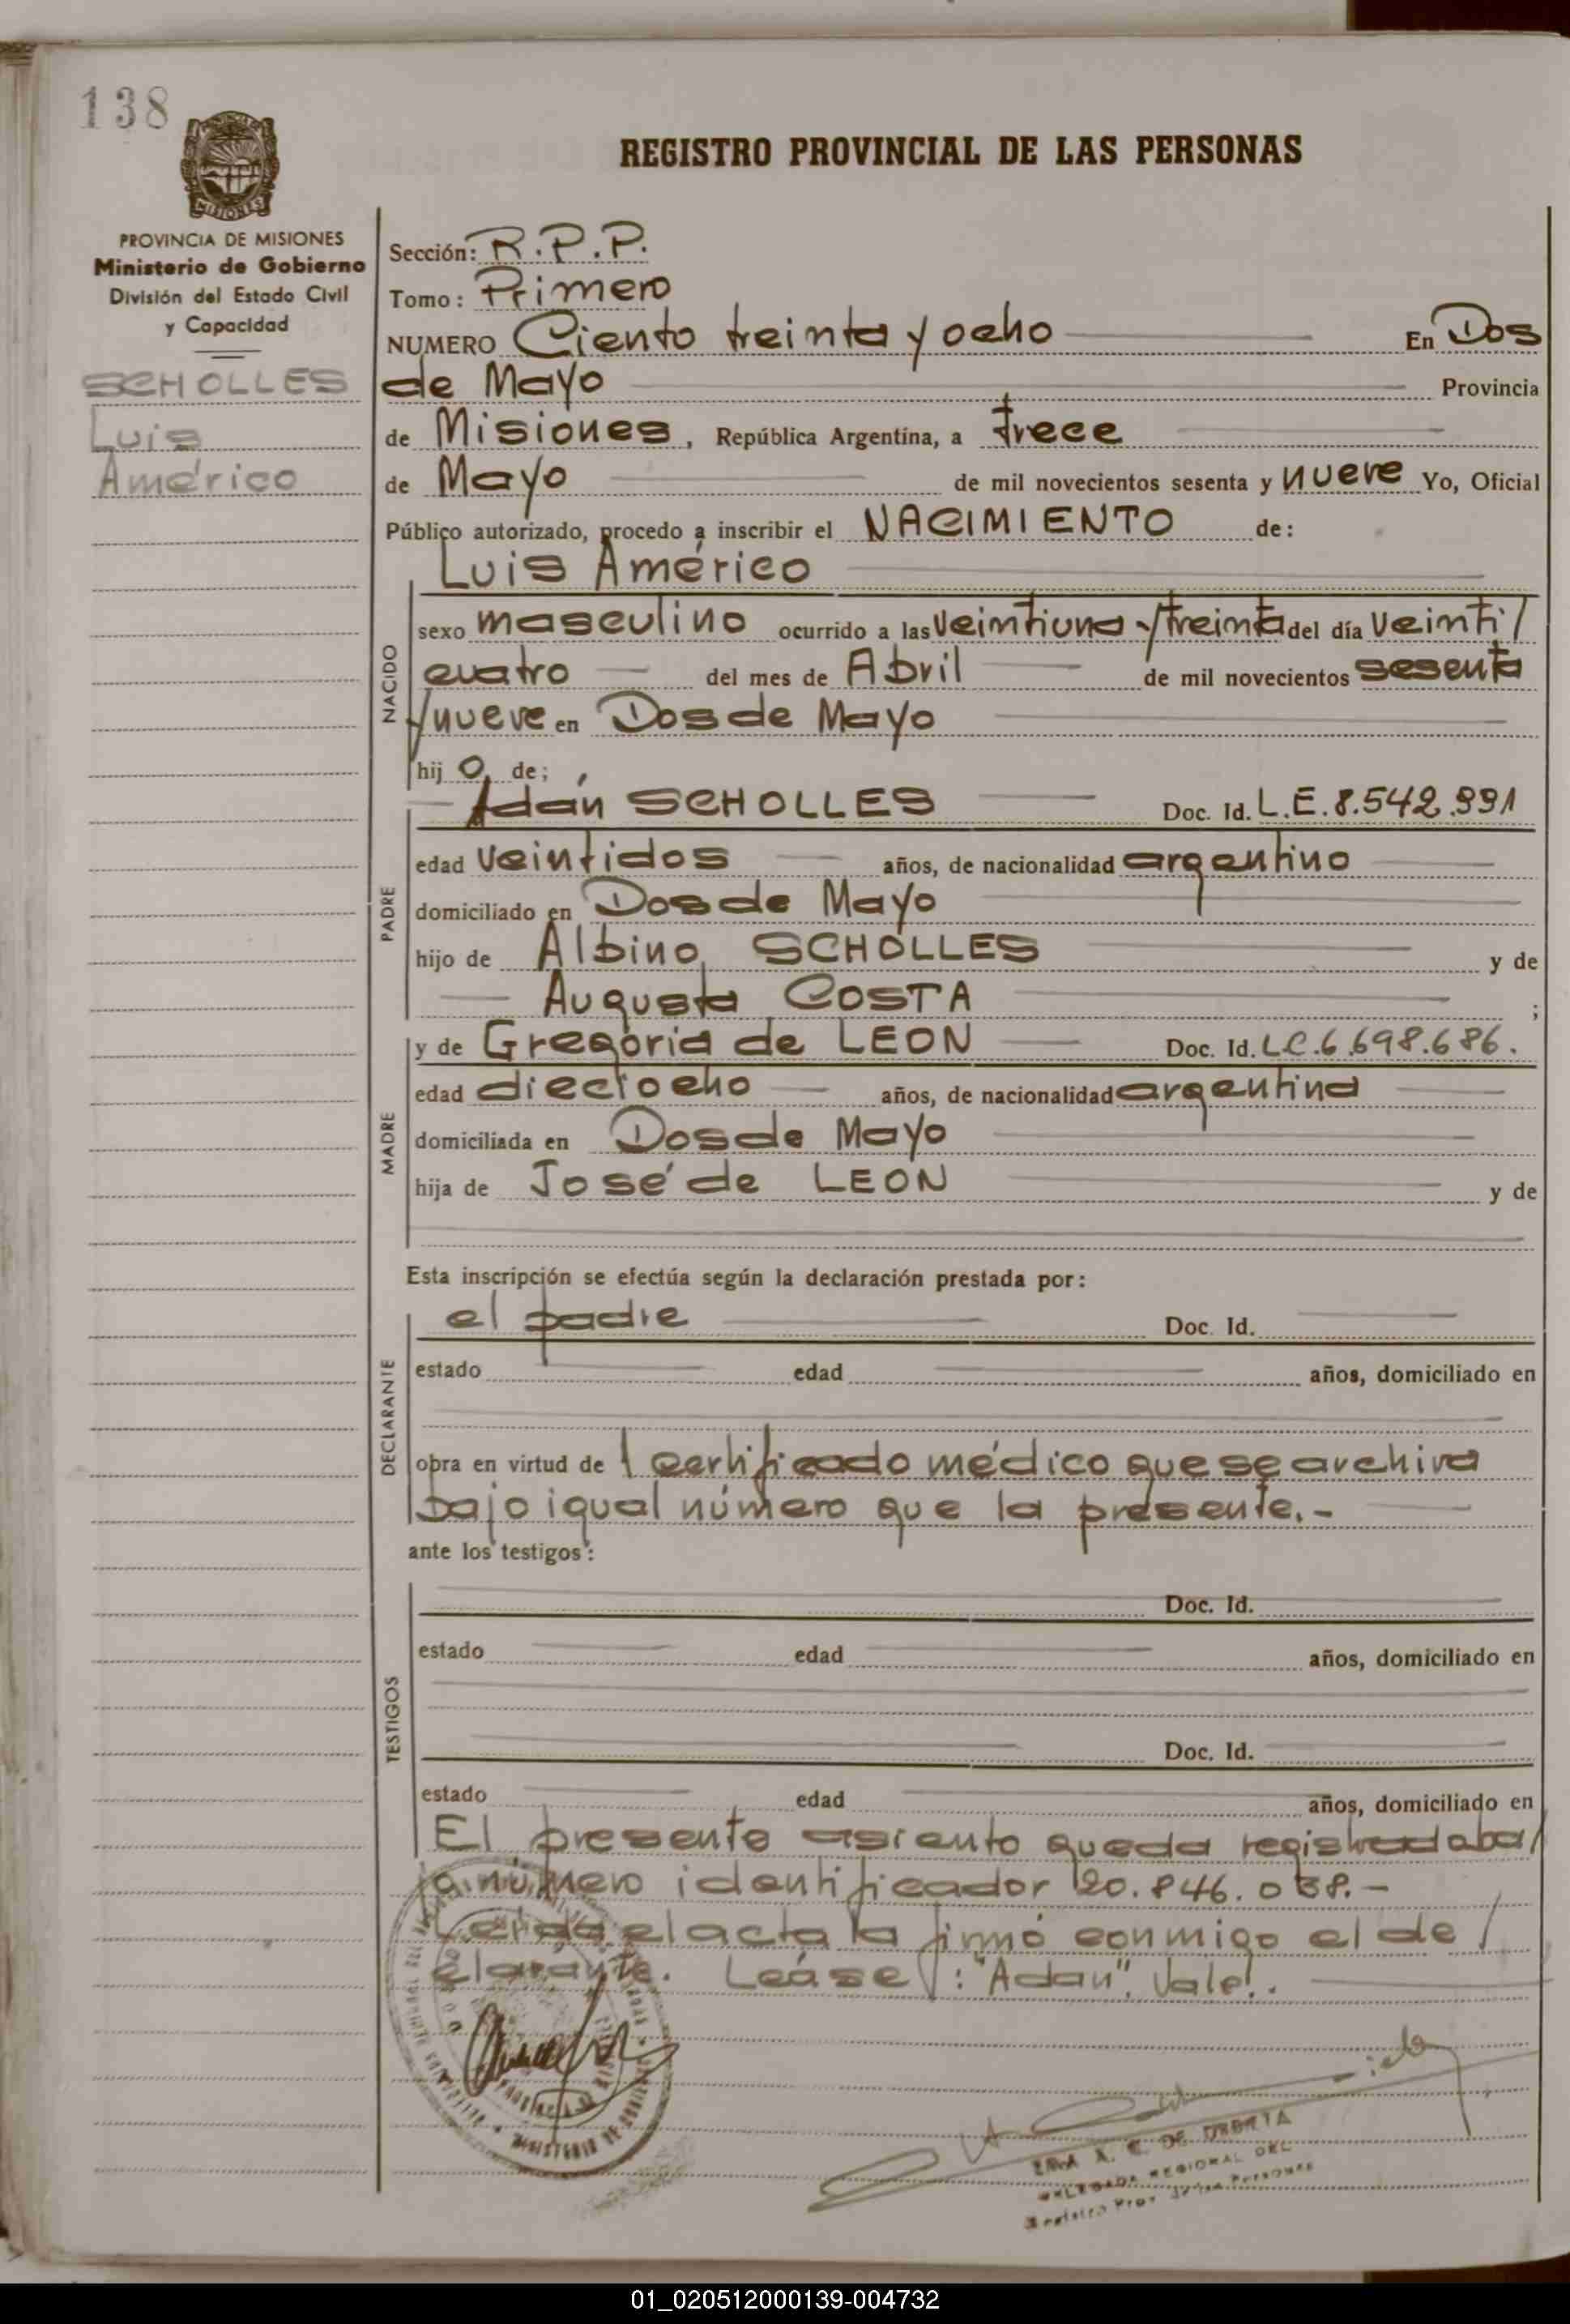 138
REGISTRO PROVINCIAL DE LAS PERSONAS
MISIONES
PROVINCIA DE MISIONES
Ministerio de Gobierno
División del Estado Civil
y Capacidad
SCHOLLES
Luis
Américo
Sección: R.P.P.
Tomo: Primero
NUMERO Ciento treinta y ocho En Dos
de Mayo Provincia
de Misiones, República Argentina, a trece
de Mayo de mil novecientos sesenta y nueve Yo, Oficial
Público autorizado, procedo a inscribir el NACIMIENTO de:
Luis Américo
NACIDO
sexo masculino ocurrido a las veintiuna y treinta del día veinti/
cuatro del mes de Abril de mil novecientos sesenta
y nueve en Dos de Mayo
hij o de;
Adán SCHOLLES Doc. Id. L.E. 8.542.991
PADRE
edad veintidos años, de nacionalidad argentino
domiciliado en Dos de Mayo
hijo de Albino SCHOLLES y de
Augusta COSTA ;
y de Gregoria de LEON Doc. Id. L.C. 6.698.686.
MADRE
edad dieciocho años, de nacionalidad argentina
domiciliada en Dos de Mayo
hija de José de LEON y de
Esta inscripción se efectúa según la declaración prestada por:
el padre Doc. Id.
DECLARANTE
estado edad años, domiciliado en
obra en virtud de 1 certificado médico que se archiva
bajo igual número que la presente.-
ante los testigos:
Doc. Id.
TESTIGOS
estado edad años, domiciliado en
Doc. Id.
estado edad años, domiciliado en
El presente asiento queda registrado ba/
jo número identificador 20.846.038.-
Leída el acta la firmó conmigo el de/
clarante. Leáse: "Adan", Vale!.
A. C. DE
DELEGADA REGIONAL DEL
Registro Prov. de las Personas
01_020512000139-004732